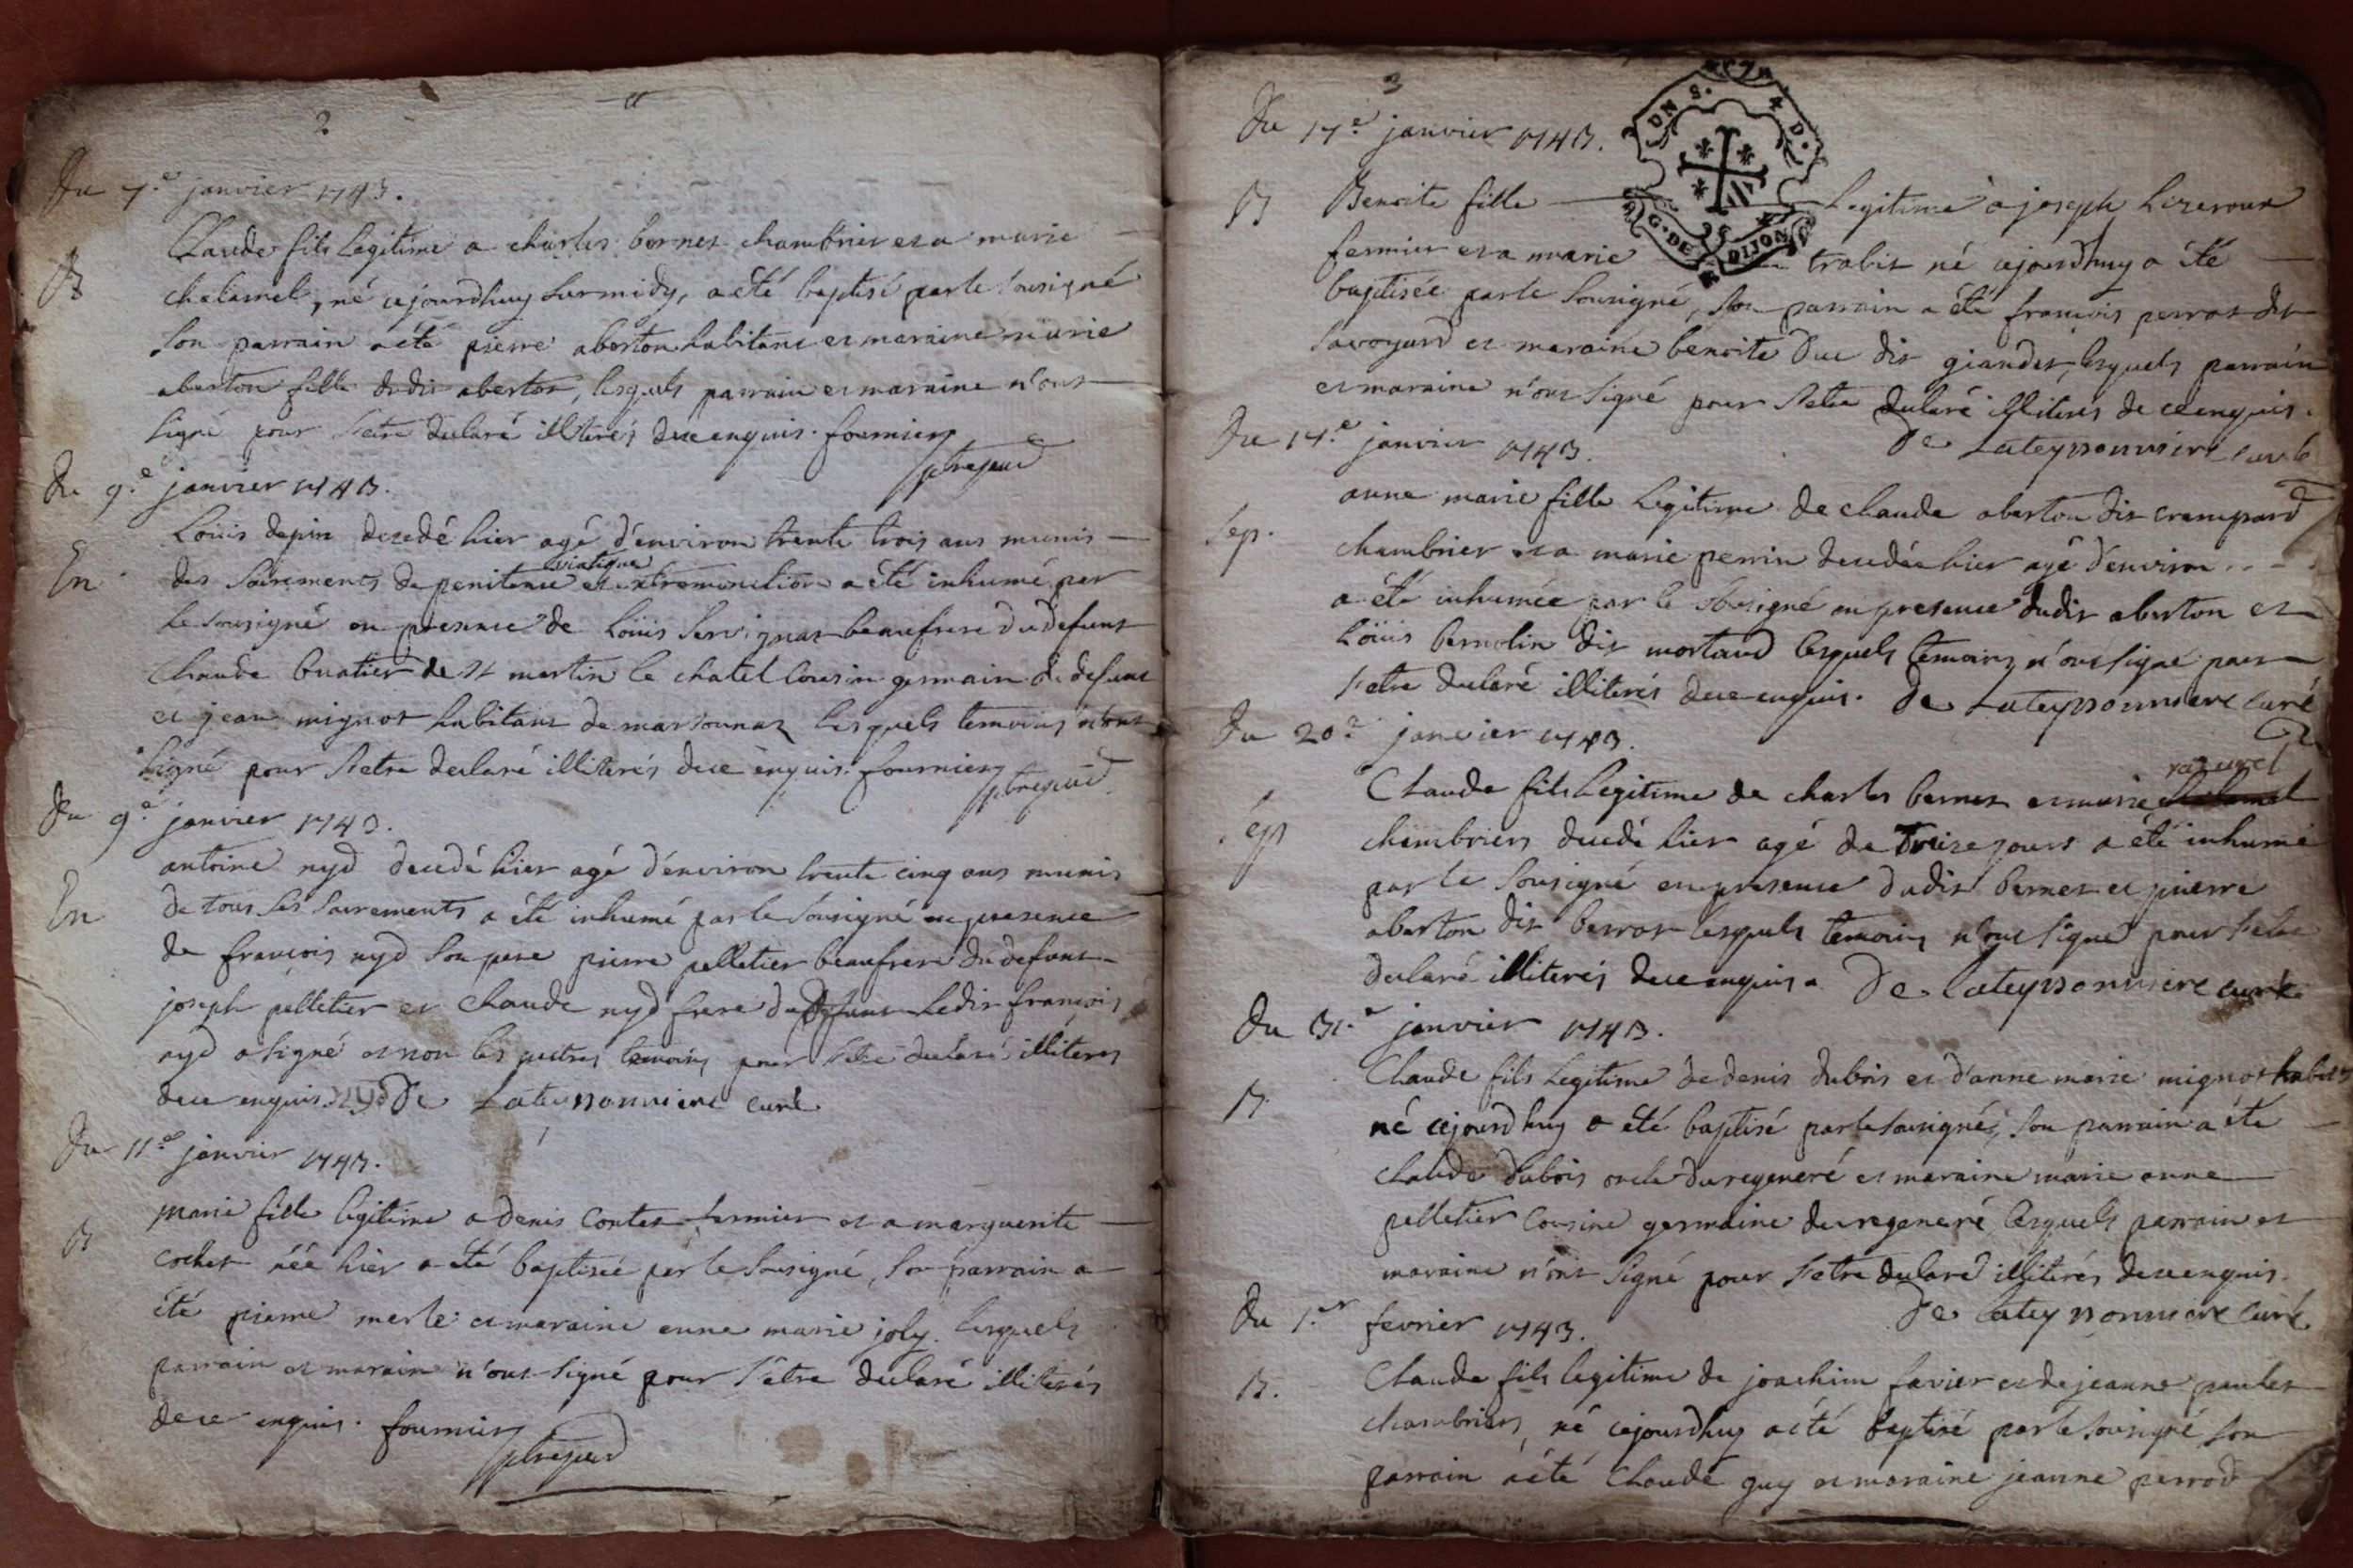 2
Du 7.e janvier 1743.
B
Claude fils Legitime a charles bernet chambrier et a marie
chalamel, né cejourdhuy surmidy, a eté baptisé par le sousigné
son parrain a eté pierre aberton habitant et maraine marie
aberton fille dudit aberton, lesquels parrain et maraine n'ont
signé pour s'etre declaré illiterés de ce enquis. fournier
Du 9.e janvier 1743.
En
Loüis depin decedé hier agé d'environ trente trois ans munis
viatique
des sacrements de penitence et extremonction a été inhumé par
le sousigné en presence de Loüis servignat beaufrere du defunt
Claude buatier de st martin le chatel cousin germain du defunt
et jean mignot habitant de marsonnaz lesquels temoins n'ont
signé pour s'etre declaré illiterés de ce enquis. fournier
Du 9.e janvier 1743.
En
antoine nyd decedé hier agé d'environ trente cinq ans munis
de tous ses sacrements a été inhumé par le sousigné en presence
de françois nyd son pere pierre pelletier beaufrere du defunt
joseph pelletier et Claude nyd frere du defunt Ledit françois
nyd a signé et non les autres temoins pour s'etre declaré illiteres
de ce enquis. nyd De Lateyssonniere curé
Du 11.e janvier 1743.
B
marie fille legitime a denis contet fermier et a marguerite
cochet néé hier a été baptisée par le sousigné, son parrain a
été pierre merle et maraine anne marie joly. lesquels
parrain et marain n'ont signé pour s'etre declaré illiterés
de ce enquis. fournier
3
Du 17.e janvier 1743.
GEN. DIJON
B
Benoite fille Legitime a joseph Lizeroux
fermier et a marie trabit né cejourdhuy a été
baptisée par le sousigné, son parrain a été françois perrot dit
savoyard et maraine benoite Duc dit giandet, lesquels parrain
et maraine n'ont signé pour s'etre declaré illiterés de ce enquis.
De Lateyssonniere curé
Du 17.e janvier 1743.
Sep.
anne marie fille Legitime de claude aberton dit crampard
chambrier et a marie perrin decedée hier agé d'environ
a été inhumée par le sousigné en presence dudit aberton et
Loüis bernolin dit mortaud lesquels temoins n'ont signé pour
s'etre declaré illiterés de ce enquis. De Lateyssonniere curé
Du 20.e janvier 1743.
razurel
Claude fils Legitime de charles bernet et marie chalamel
Sep
chambriers decedé hier agé de treize jours a été inhumé
par le sousigné en presence dudit bernet et pierre
aberton dit berrot lesquels temoins n'ont signé pour s'etre
declaré illiterés de ce enquis. De Lateyssonniere curé
Du 31.e janvier 1743.
Claude fils Legitime de denis dubois et d'anne marie mignot habits
B
né cejourdhuy a été baptisé par le sousigné, son parrain a été
Claude dubois oncle du regeneré et maraine marie anne
pelletier cousine germaine du regeneré lesquels parrain et
maraine n'ont signé pour s'etre declaré illiterés de ce enquis.
De Lateyssonniere curé
Du 1.er fevrier 1743.
B.
Claude fils legitime de joachim favier et de jeanne paulet
chambriers, né cejourdhuy a été baptisé par le sousigné son
parrain a été Claude guy et maraine jeanne perrod